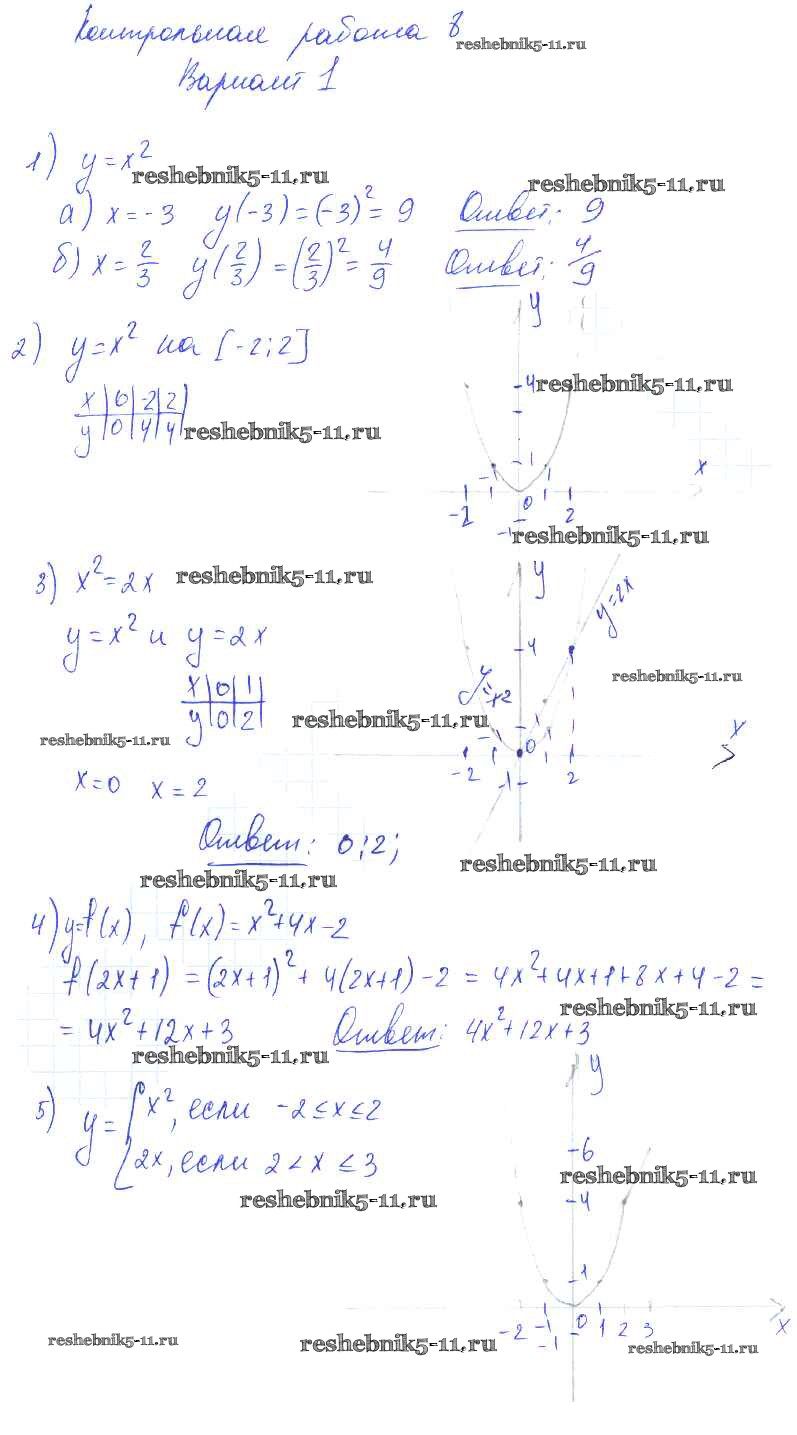 Контрольная работа 8
reshebnik5-11.ru
Вариант 1
1) y = x²
reshebnik5-11.ru
reshebnik5-11.ru
а) x = -3 y(-3) = (-3)² = 9 Ответ: 9
б) x = 2/3 y(2/3) = (2/3)² = 4/9 Ответ: 4/9
2) y = x² на [-2; 2]
x | 0 | -2 | 2
y | 0 | 4 | 4
reshebnik5-11.ru
y
4
reshebnik5-11.ru
1
x
-1 1
-2 0 2
-1
reshebnik5-11.ru
3) x² = 2x
reshebnik5-11.ru
y = x² и y = 2x
x | 0 | 1
y | 0 | 2
reshebnik5-11.ru
reshebnik5-11.ru
x = 0 x = 2
y
y = 2x
4
reshebnik5-11.ru
y = x²
1
x
-1 0 1
-2 2
-1
Ответ: 0; 2;
reshebnik5-11.ru
reshebnik5-11.ru
4) y = f(x), f(x) = x² + 4x - 2
f(2x + 1) = (2x+1)² + 4(2x+1) - 2 = 4x² + 4x + 1 + 8x + 4 - 2 =
reshebnik5-11.ru
= 4x² + 12x + 3 Ответ: 4x² + 12x + 3
reshebnik5-11.ru
5) y = { x², если -2 ≤ x ≤ 2
2x, если 2 < x ≤ 3
reshebnik5-11.ru
y
6
reshebnik5-11.ru
4
1
-2 -1 0 1 2 3 x
-1
reshebnik5-11.ru
reshebnik5-11.ru
reshebnik5-11.ru